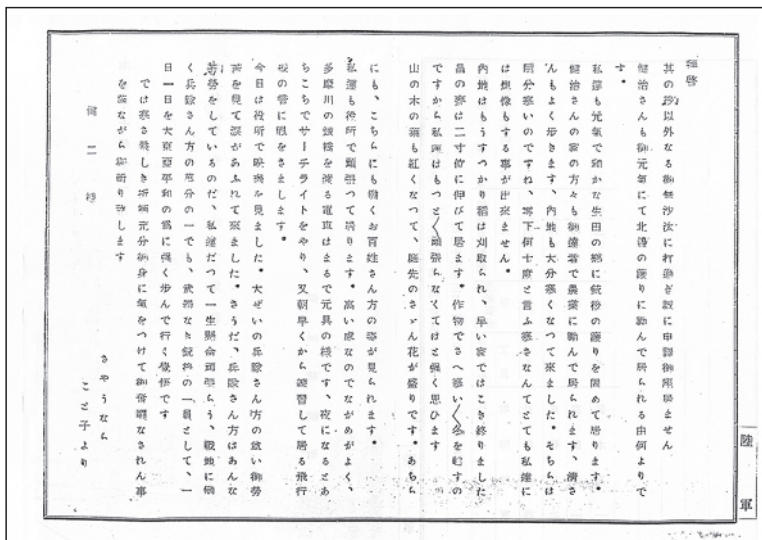 拝啓
其の後以外なる御無沙汰に打過ぎ誠に申訳御座居ません
健治さんも御元氣にて北邊の護りに勤んで居られる由何よりで
す。
私達も元氣で和かな生田の郷に銃後の護りを固めて居ります。
健治さんの家の方々も御達者で農業に勤んで居られます、清さ
んもよく歩きます、内地も大分寒くなつて来ました。そちらは
随分寒いのですね、零下何十度と言ふ寒さなんてとても私達に
は想像もする事が出来ません。
内地はもうすつかり稲は刈取られ、早い家ではこき終りました
畠の麥は二寸位に伸びて居ます。作物でさへ寒い〱冬を越すの
ですから私達はもつと〱頑張らなくてはと強く思ひます
山の木の葉も紅くなつて、庭先のさゞん花が盛りです。あちら
にも、こちらにも働くお百姓さん方の姿が見られます。
私達も役所で頑張つて居ります。高い處なのでながめがよく、
多摩川の鉄橋を渡る電車はまるで元具の様です、夜になるとあ
ちこちでサーチライトをやり、又朝早くから練習して居る飛行
機の音に眼をさまします。
今日は役所で映画を見ました。大ぜいの兵隊さん方の尊い御勞
苦を見て涙があふれて来ました。さうだ、兵隊さん方はあんな
苦勞をしているのだ、私達だつて一生懸命頑張らう、戦地に働
く兵隊さん方の萬分の一でも、武器なき銃後の一員として、一
日一日を大東亜平和の為に強く歩んで行く覚悟です
では寒さ厳しき折柄充分御身に氣をつけて御奮闘なされん事
を蔭ながら御祈り致します
さやうなら
こと子より
健二様
陸軍